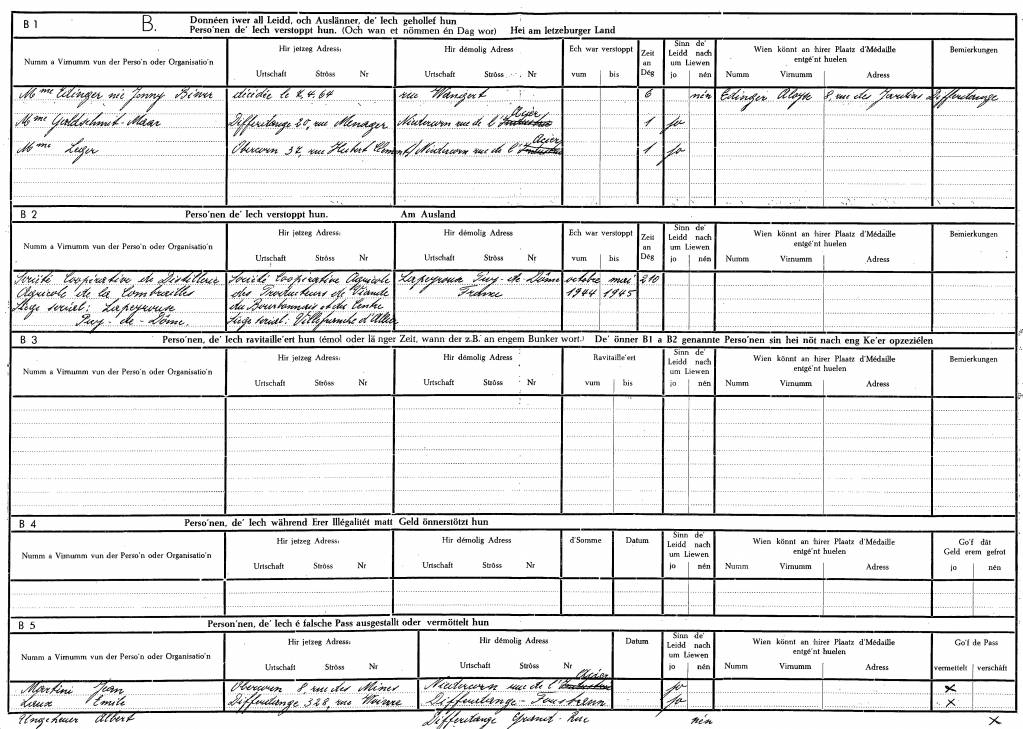 B 1 B. Donnéen iwer all Leidd, och Auslänner, de' Iech gehollef hun
Perso'nen de' Iech verstoppt hun. (Och wan et nömmen én Dag wor) Hei am letzeburger Land
Numm a Virnumm vun der Perso'n oder Organisatio'n Hir jetzeg Adress: Hir démolig Adress Ech war verstoppt Zeit an Dég Sinn de' Leidd nach um Liewen Wien könnt an hirer Plaatz d'Médaille entgé'nt huelen Bemierkungen
Urtschaft Ströss Nr Urtschaft Ströss Nr vum bis jo nén Numm Virnumm Adress
Mme Edinger née Jenny Biver décédée le 2.4.64 rue Wangert 6 nén Edinger Aloyse 8, rue des Jardins Differdange
Mme Goldschmit-Maar Differdange 20, rue Menager Niedercorn rue de l'Industrie Acier 1 jo
Mme Leger Obercorn 37, rue Hubert Clement Niedercorn rue de l'Industrie Acier 1 jo
B 2 Perso'nen de' Iech verstoppt hun. Am Ausland
Numm a Virnumm vun der Perso'n oder Organisatio'n Hir jetzeg Adress: Hir démolig Adress Ech war verstoppt Zeit an Dég Sinn de' Leidd nach um Liewen Wien könnt an hirer Plaatz d'Médaille entgé'nt huelen Bemierkungen
Urtschaft Ströss Nr Urtschaft Ströss Nr vum bis jo nén Numm Virnumm Adress
Société Coopérative de Distillerie Société Coopérative Agricole Lapeyrouse Puy-de-Dôme octobre mai 210
Agricole de la Combrailles des Producteurs de Viande France 1944 1945
Siège social: Lapeyrouse du Bourbonnais et du Centre
Puy-de-Dôme. Siège social: Villefranche d'Allier
B 3 Perso'nen, de' Iech ravitaille'ert hun (émol oder lä nger Zeit, wann der z.B. an engem Bunker wort.) De' önner B1 a B2 genannte Perso'nen sin hei nöt nach eng Ke'er opzeziélen
Numm a Virnumm vun der Perso'n oder Organisatio'n Hir jetzeg Adress: Hir démolig Adress Ravitaille'ert Sinn de' Leidd nach um Liewen Wien könnt an hirer Plaatz d'Médaille entgé'nt huelen Bemierkungen
Urtschaft Ströss Nr Urtschaft Ströss Nr vum bis jo nén Numm Virnumm Adress
B 4 Perso'nen, de' Iech während Erer Illégalitét matt Geld önnerstötzt hun
Numm a Virnumm vun der Perso'n oder Organisatio'n Hir jetzeg Adress: Hir démolig Adress d'Somme Datum Sinn de' Leidd nach um Liewen Wien könnt an hirer Plaatz d'Médaille entgé'nt huelen Go'f dát Geld erem gefrot
Urtschaft Ströss Nr Urtschaft Ströss Nr jo nén Numm Virnumm Adress jo nén
B 5 Person'nen, de' Iech é falsche Pass ausgestallt oder vermöttelt hun
Numm a Virnumm vun der Perso'n oder Organisatio'n Hir jetzeg Adress: Hir démolig Adress Datum Sinn de' Leidd nach um Liewen Wien könnt an hirer Plaatz d'Médaille entgé'nt huelen Go'f de Pass
Urtschaft Ströss Nr Urtschaft Ströss Nr jo nén Numm Virnumm Adress vermettelt verschäft
Martini Jean Obercorn 8, rue des Mines Niedercorn rue de l'Industrie Acier jo x
Emile Differdange 328, rue Differdange-Fousbann jo x
Ungeheuer Albert Differdange Grand-Rue nén x